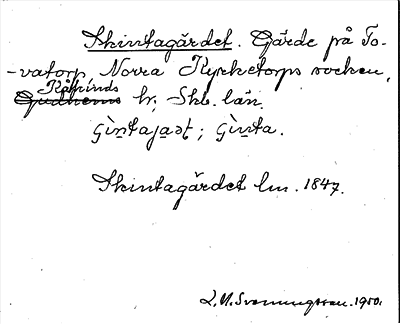 Skintagärdet. Gärde på To-
-vatorp, Norra Kyrketorps socken,
Kåkinds
Gudhems hr; Skb. län.
Gintajaət; Ginta.
Skintagärdet lm. 1847.
1950.